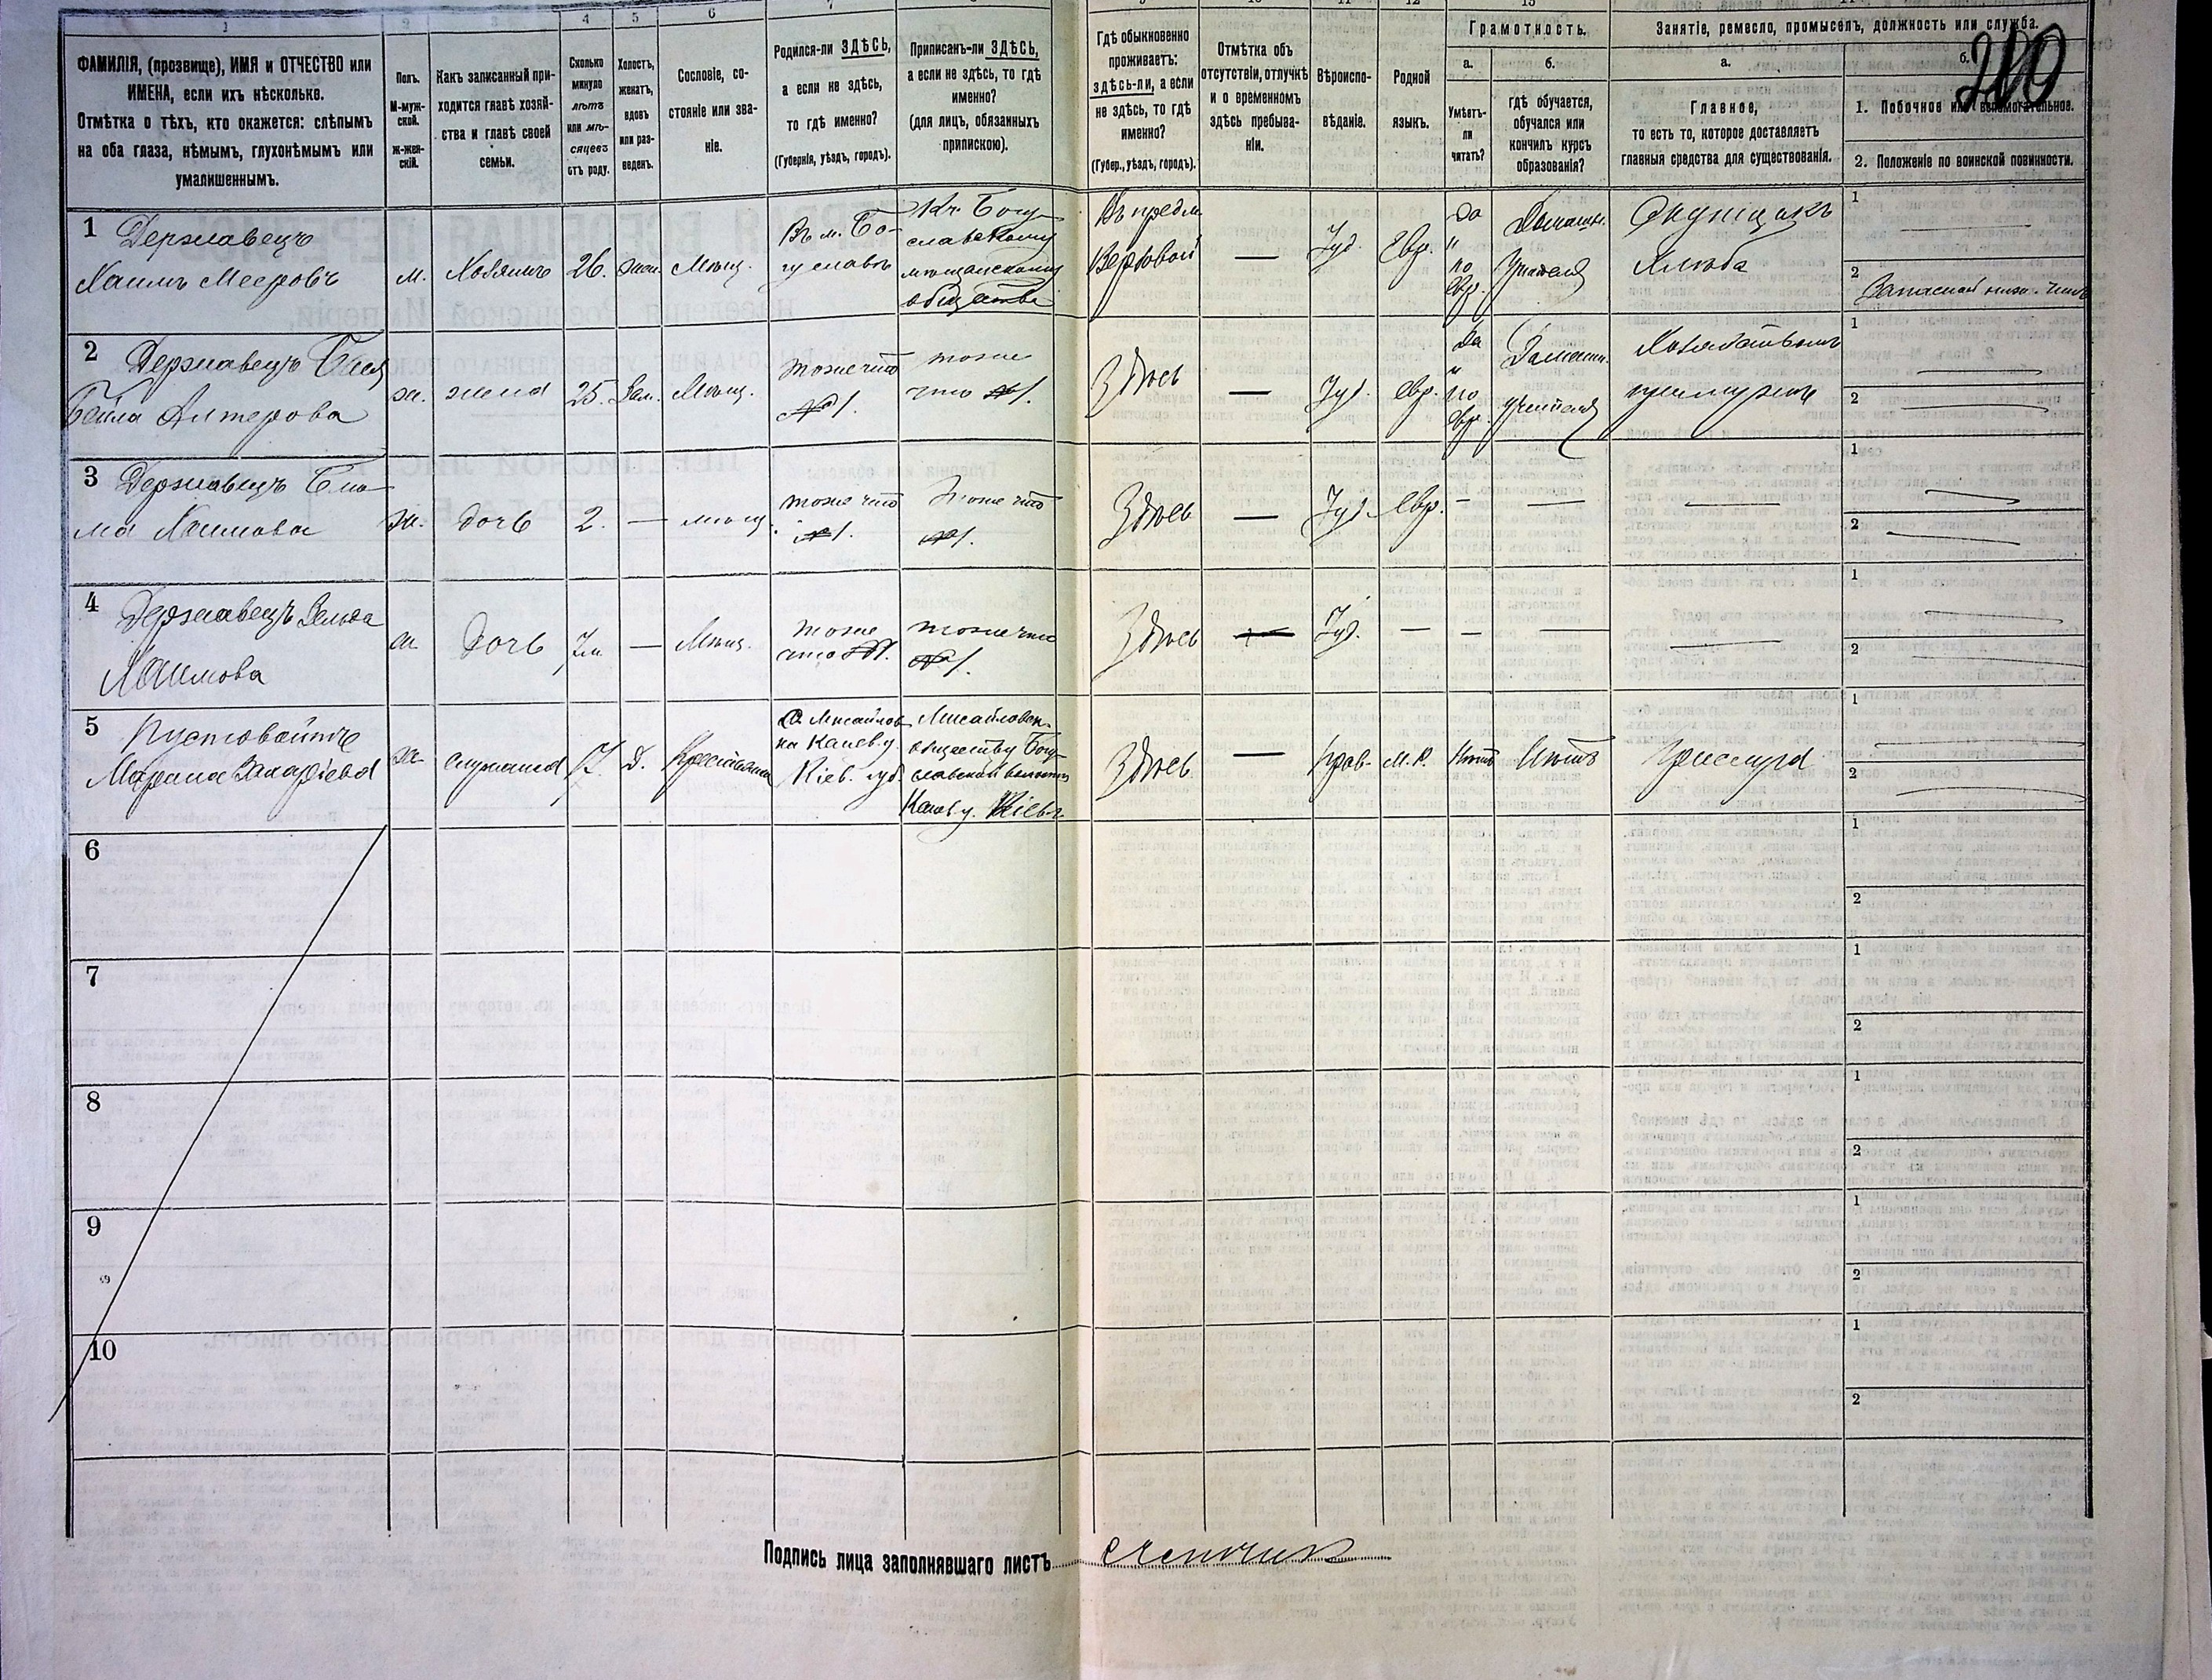 1
3
4
5
6
ФАМИЛІЯ, (прозвище), ИМЯ и ОТЧЕСТВО или
ИМЕНА, если ихъ нѣсколько.
Отмѣтка о тѣхъ, кто окажется: слѣпымъ
на оба глаза, нѣмымъ, глухонѣмымъ или
умалишеннымъ.
Полъ.
М-муж-
ской.
Ж-жен-
скій.
Какъ записанный при-
ходится главѣ хозяй-
ства и главѣ своей
семьи.
Сколько
минуло
лѣтъ
или мѣ-
сяцевъ
отъ роду.
Холостъ,
женатъ,
вдовъ
или раз-
веденъ.
Сословіе, со-
стояніе или зва-
ніе.
Родился-ли ЗДѢСЬ,
а если не здѣсь,
то гдѣ именно?
(Губернія, уѣздъ, городъ).
Приписанъ-ли ЗДѢСЬ,
а если не здѣсь, то гдѣ
именно?
(для лицъ, обязанныхъ
припискою).
Гдѣ обыкновенно
проживаетъ:
здѣсь-ли, а если
не здѣсь, то гдѣ
именно?
(Губер., уѣздъ, городъ).
Отмѣтка объ
отсутствіи, отлучкѣ
и о временномъ
здѣсь пребыва-
ніи.
Вѣроиспо-
вѣданіе.
Родной
языкъ.
Грамотность.
а.
Умѣетъ-
ли
читать?
б.
гдѣ обучается,
обучался или
кончилъ курсъ
образованія?
Занятіе, ремесло, промыселъ, должность или служба.
а.
Главное,
то есть то, которое доставляетъ
главныя средства для существованія.
б.
200
1. Побочное или вспомогательное.
2. Положеніе по воинской повинности.
1 Державецъ
Хаимъ Мееровъ
м.
Хозяинъ
26.
жен.
Мѣщ.
Въ м. Бо-
гуславѣ
Къ Богу-
славскому
мѣщанскому
обществу
Въ предм.
—
Іуд.
Евр.
да
"
по
евр.
Домашн.
Учителя
Скупщикъ
хлѣба
1 —
2 Запасной ниж. чинъ
2 Державецъ
Бейла Алтерова
ж.
жена
25.
Зам.
Мѣщ.
тоже что
№ 1.
тоже
что № 1.
Здѣсь
—
Іуд.
евр.
да
"
по
евр.
Домашн.
учителя
при мужѣ
1 —
2 —
3 Державецъ Блю-
ма Хаимова
ж.
дочь
2.
—
мѣщ.
тоже что
№ 1.
Тоже что
№ 1.
Здѣсь
—
Іуд.
евр.
—
—
—
1 —
2 —
4 Державецъ Зельда
Хаимова
ж.
Дочь
7 м.
—
Мѣщ.
тоже
что № 1.
тоже что
№ 1.
Здѣсь
—
Іуд.
—
—
—
—
1 —
2 —
5 Пустовойтъ
Марина Захаріева
ж.
служанка
17.
д.
Крестьянка
С. Мисайлов-
ка Канев. у.
Кіев. губ.
Мисайловск.
обществу Богу-
славской волости
Канев. у. Кіев. г.
Здѣсь
—
Прав.
М. Р.
Нѣтъ
Нѣтъ
Прислуга
1 —
2 —
6
1
2
7
1
2
8
1
2
9
1
2
10
1
2
Подпись лица заполнявшаго листъ
счетчикъ